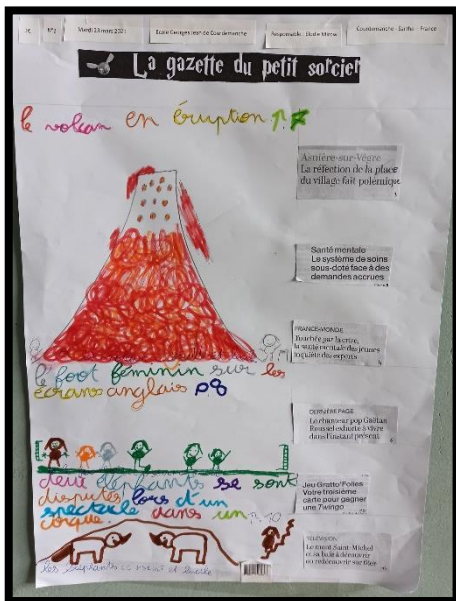 1€
N°2
Mardi 23 mars 2021
Ecole Georges Jean de Coudemanche
Responsable : Elodie
Courdemanche - Sarthe - France
La gazette du petit sorcier
le volcan en éruption p.7
Asnière-sur-Vègre
La réfection de la place
du village fait polémique
Santé mentale
Le système de soins
sous-doté face à des
demandes accrues
FRANCE-MONDE
Touchée par la crise,
la santé mentale des jeunes
inquiète les experts
le foot féminin sur les
écrans anglais p.8
DERNIÈRE PAGE
Le chanteur pop Gaëtan
Roussel exhorte à vivre
dans l'instant présent
deux éléphants se sont
disputés lors d'un
spectacle dans un p.10
cirque.
Jeu Gratto'Folies
Votre troisième
carte pour gagner
une Twingo
TÉLÉVISION
Le mont Saint-Michel
et sa baie à découvrir
ou redécouvrir sur
les éléphants
et